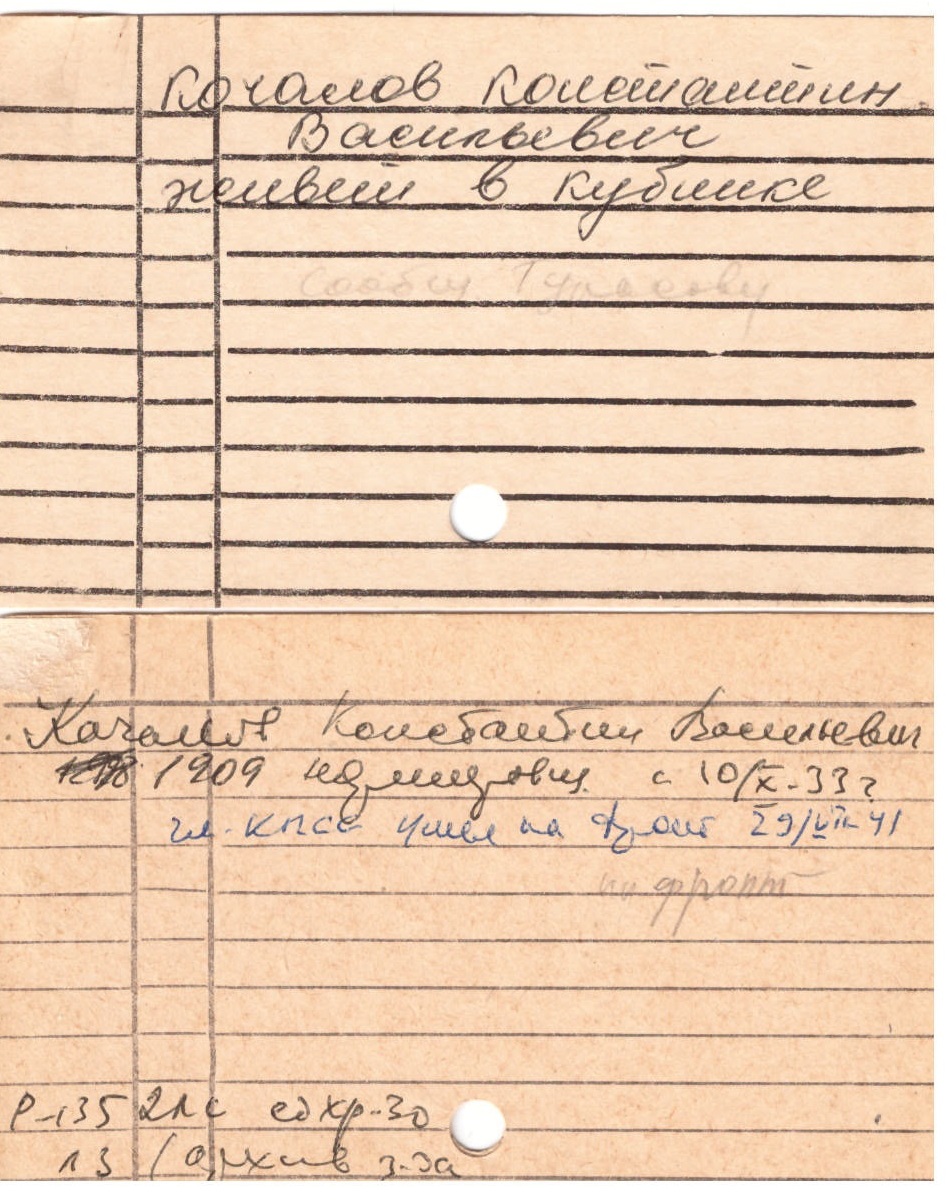 Качалов Константин
Васильевич
живет в Кубинке
сообщ
Качалов Константин Васильевич
1909 с 10/X-33 г
чл. КПСС ушел на фронт 29/VII-41
на фронт
Р-135 2лс едхр-30
л 3 (архив з-да